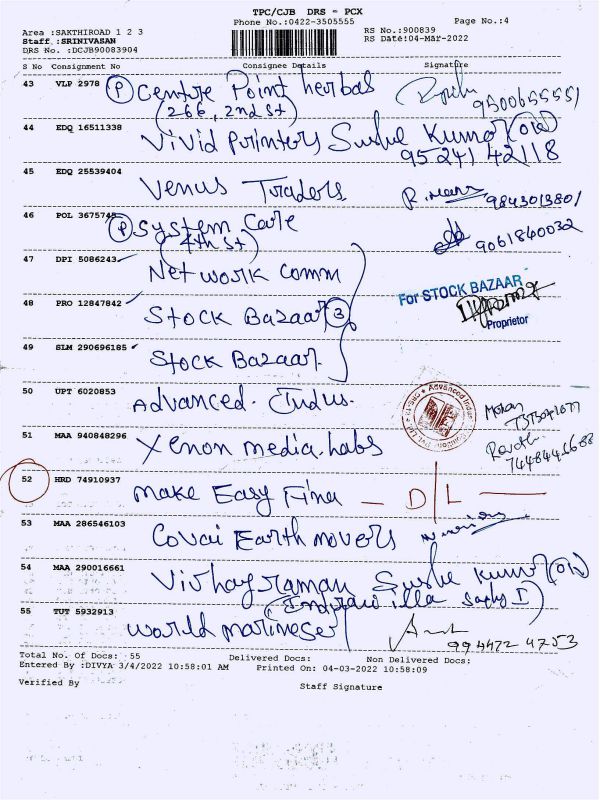 TPC/CJB DRS - PCX
Phone No.:0422-3505555
Page No.:4
Area :SAKTHIROAD 1 2 3
Staff :SRINIVASAN
DRS No. :DCJB90083904
RS No.:900839
RS Date:04-Mar-2022
S No Consignment No Consignee Details Signature
43 VLP 2978 (P) Centre Point herbals
(266, 2nd St) 9500655551
44 EDQ 16511338 Vivid Printers Sushe Kumar (OK)
95241 42118
45 EDQ 25539404 Venus Traders R. 9843013801
46 POL 3675745 (P) System Care
(4th St) 9061840032
47 DPI 5086243 Network Comm
For STOCK BAZAAR
Proprietor
48 PRO 12847842 Stock Bazaar (3)
49 SLM 290696185 Stock Bazaar.
50 UPT 6020853 Advanced. Indus.
Mohan
51 MAA 940848296 Xenon media. Labs
52 HRD 74910937 Make Easy Fina - D/L -
53 MAA 286546103 Covai Earth movers
54 MAA 290016661 Vivhayraman Sushe Kumar (OK)
55 TUT 5932913 World marineser
994472 4753
Total No. Of Docs: 55 Delivered Docs: Non Delivered Docs:
Entered By :DIVYA 3/4/2022 10:58:01 AM Printed On: 04-03-2022 10:58:09
Verified By Staff Signature